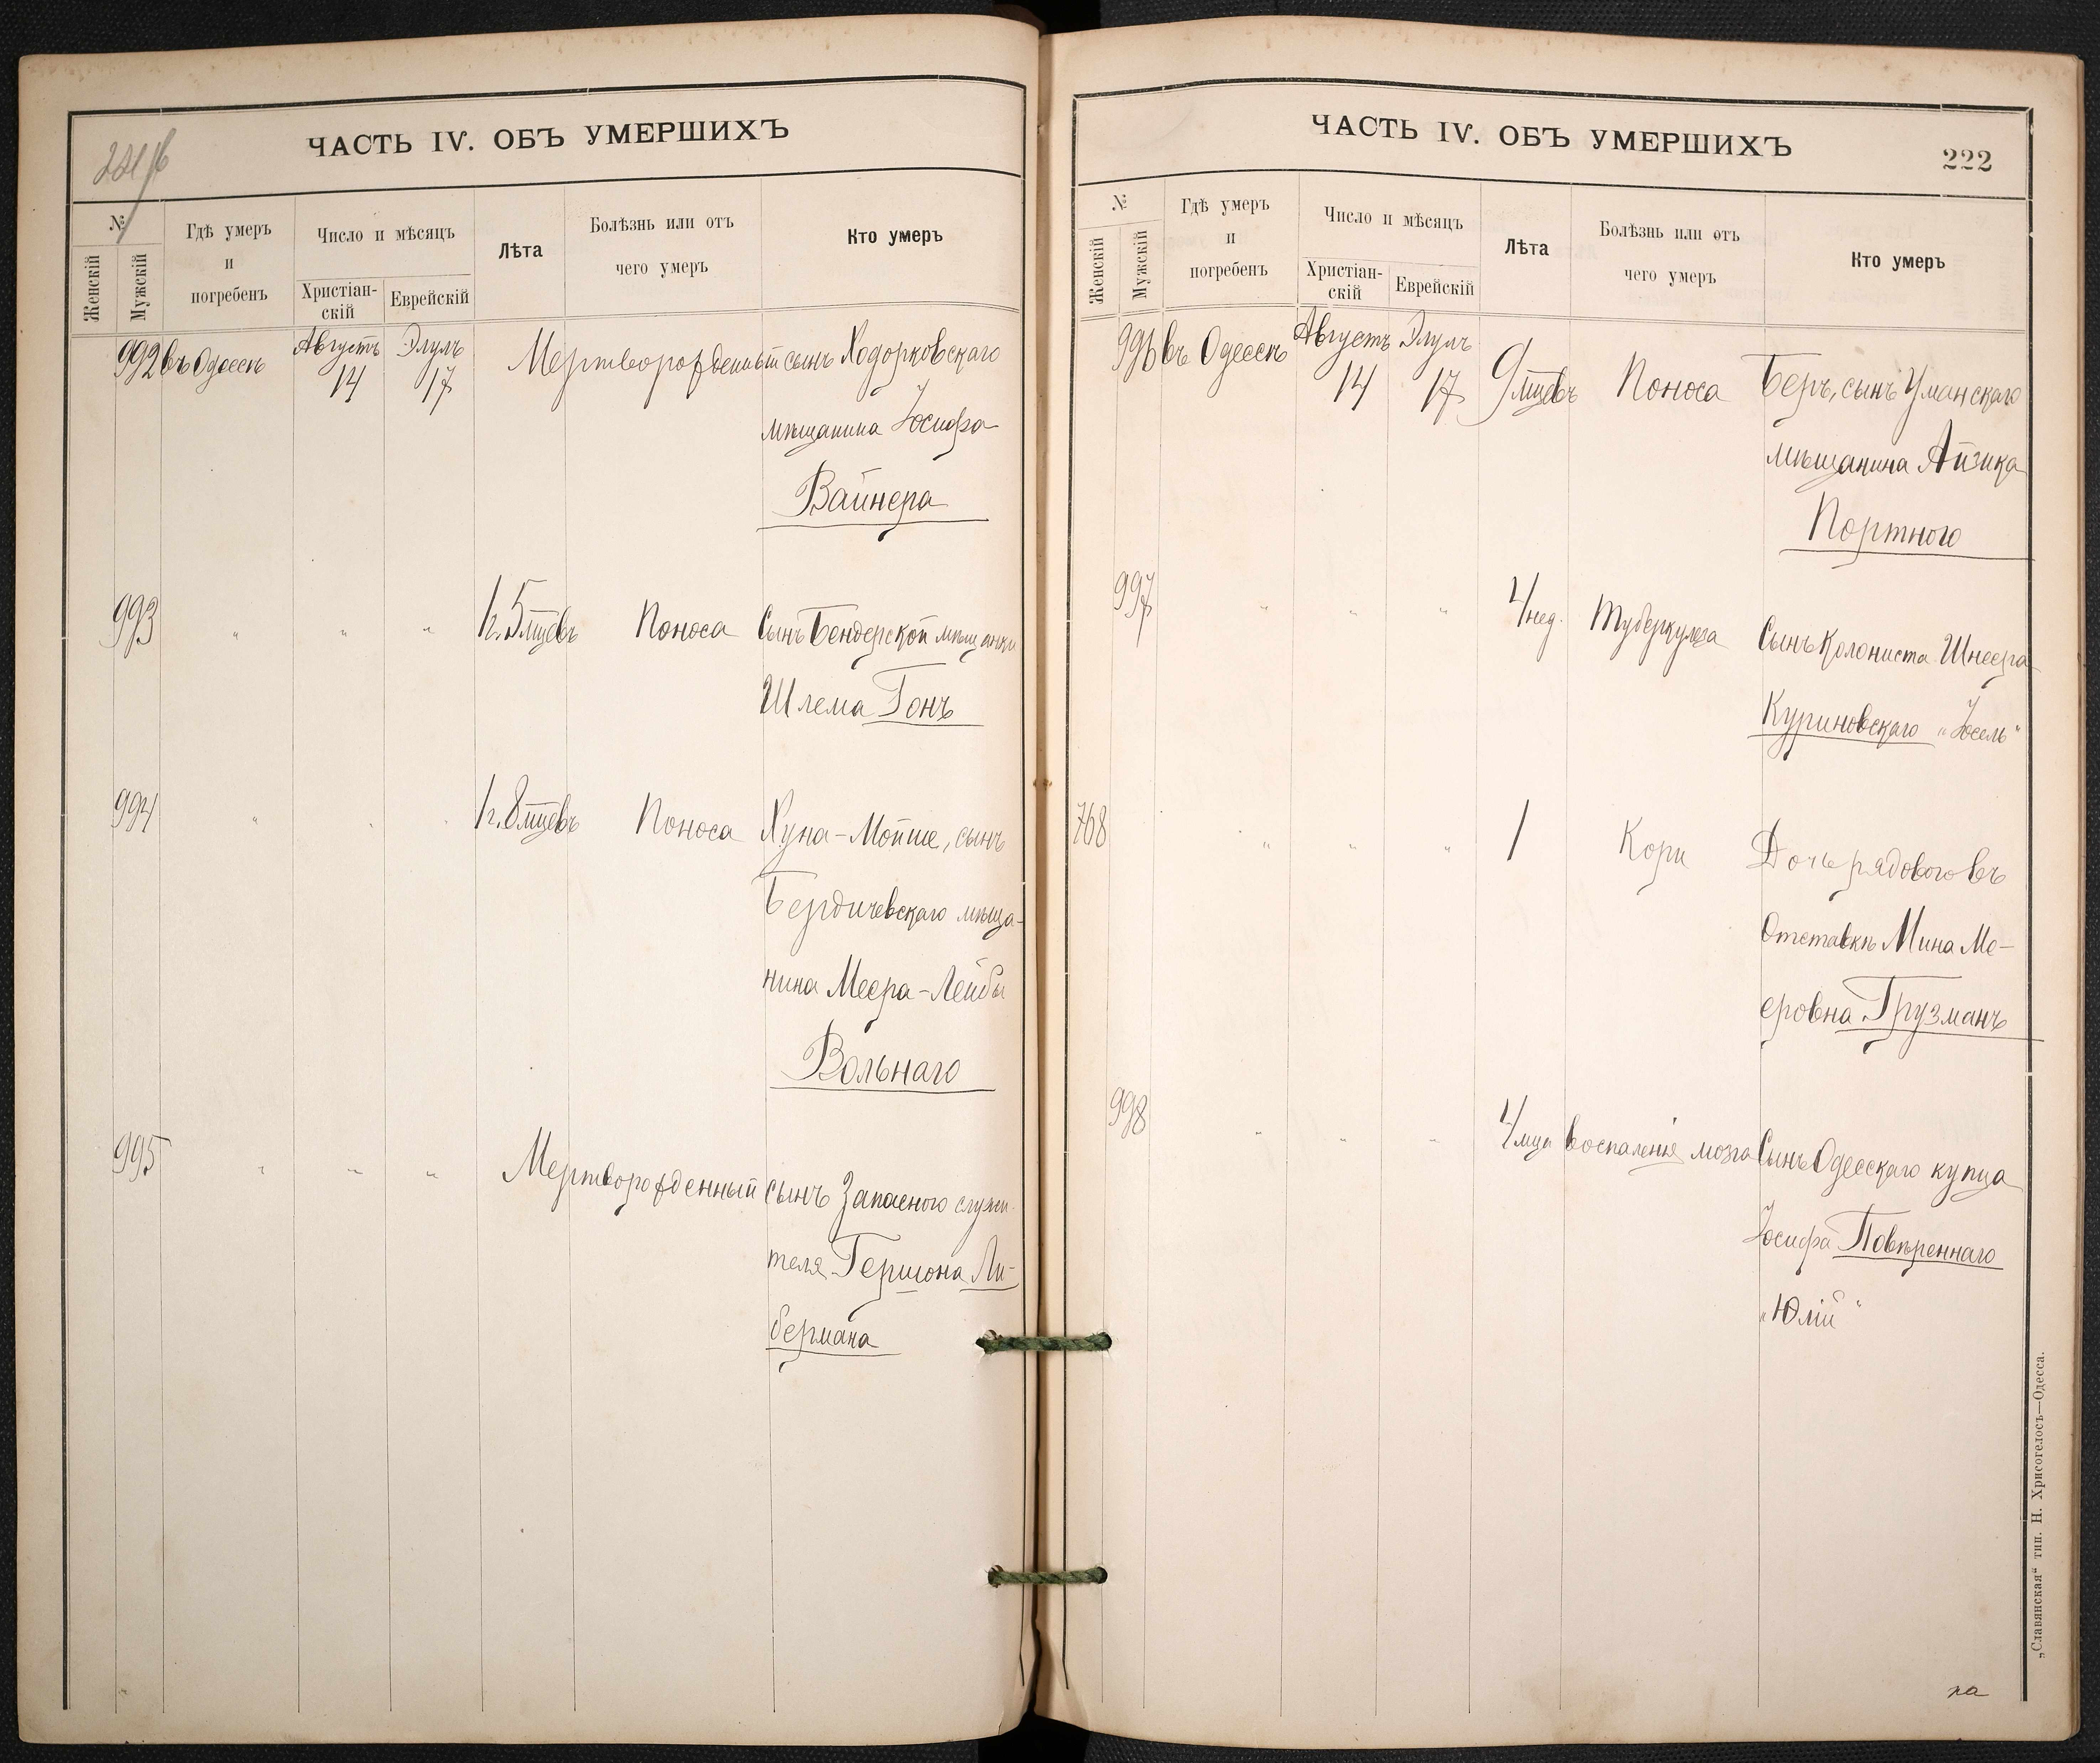 ЧАСТЬ IV. ОБЪ УМЕРШИХЪ
№
Женскій
Мужскій
Гдѣ умеръ
и
погребенъ
Число и мѣсяцъ
Христіан-
скій
Еврейскій
Лѣта
Болѣзнь или отъ
чего умеръ
Кто умеръ
992 въ Одессѣ Августъ Элулъ Мертворожденный сынъ Ходорковскаго
14 17
мѣщанина Іосифа
Вайнера
993 " " " 1 г. 5 мцевъ Поноса Сынъ Бендерской мѣщанки
Шлема Гонъ
994 " " " 1 г. 8 мцевъ Поноса Хуна-Мойше, сынъ
Бердичевскаго мѣща-
нина Меера-Лейбы
Вольнаго
995 " " " Мертворожденный сынъ Запасного служи-
теля Гершона Ли-
бермана
ЧАСТЬ IV. ОБЪ УМЕРШИХЪ
222
№
Женскій
Мужскій
Гдѣ умеръ
и
погребенъ
Число и мѣсяцъ
Христіан-
скій
Еврейскій
Лѣта
Болѣзнь или отъ
чего умеръ
Кто умеръ
996 въ Одессѣ Августъ Элулъ
14 17 9 мцевъ Поноса Беръ, сынъ Уманскаго
мѣщанина Айзика
Портного
997 " " " 4 нед. Туберкулеза Сынъ Колониста Шнеера
Куриновскаго „Іосель“
768 " " " 1 Кори Дочь рядового въ
Отставкѣ Мина Ме-
еровна Грузманъ
998 " " " 4 мца Воспаленія мозга Сынъ Одесскаго купца
Іосифа Повѣреннаго
„Юлій“
„Славянская“ тип. Н. Хрисогелосъ—Одесса.